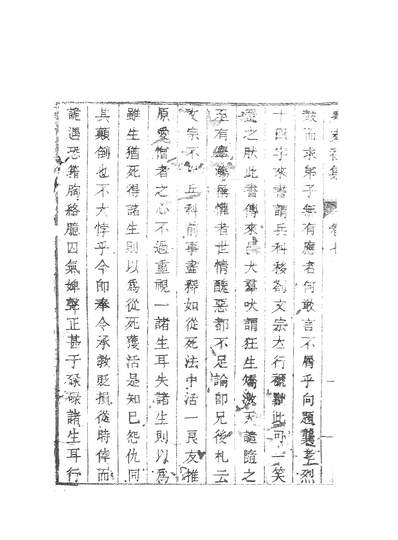 鼓而求弟子無有應者何敢言不屑乎向題龔孝烈
十四字來書謂兵科移劄文宗大行此可一笑
置之耳此書傳來吳犬羣吠謂狂生激天譴隨之
至有者世情醜惡都不足論卽兄後札云
文宗不兵科前事盡釋如從死法中活一良友推
原愛惜者之心不過重視一諸生耳失諸生則以為
雖生猶死得諸生則以為從死獲活是知已怨仇同
其顛倒也不大悖乎今卽奉令承教貶損從時倖而
詭遇恐羞胸絡廳囚氣婢聲正甚于碌碌諸生耳行